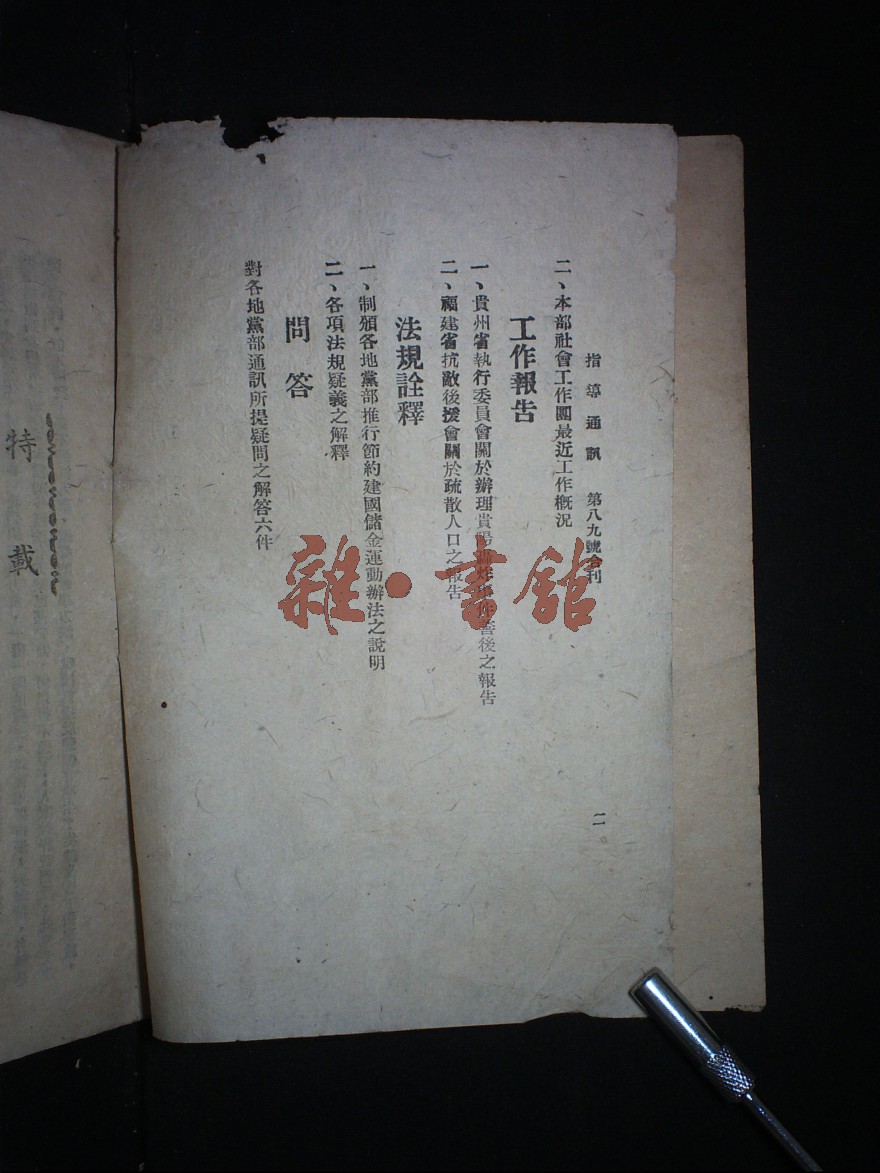 指導通訊 第八九號合刊
二
二、本部社會工作團最近工作概況
工作報告
一、貴州省執行委員會關於辦理貴陽善後之報告
二、福建省抗敵後援會關於疏散人口之報告
法規詮釋
一、制頒各地黨部推行節約建國儲金運動辦法之說明
二、各項法規疑義之解釋
問答
對各地黨部通訊所提疑問之解答六件
特載
雜·書館